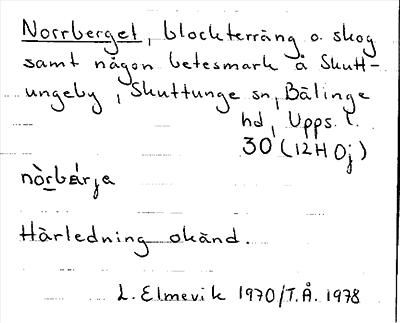 Norrberget, blockterräng o. skog
samt någon betesmark å Skutt-
ungeby, Skuttunge sn, Bälinge
hd, Upps. l.
30 (12H 0j)
nòrbærja
Härledning okänd.
L. Elmevik 1970/T.Å. 1978